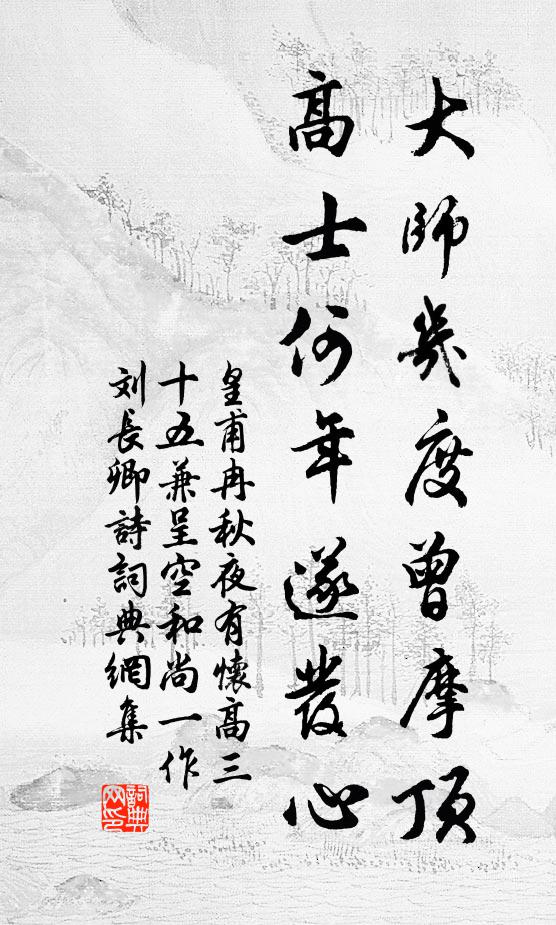 大師幾度曾摩頂
高士何年遂發心
皇甫冉秋夜有懷高三
十五兼呈空和尚一作
刘長卿詩詞典網集
詞典网印